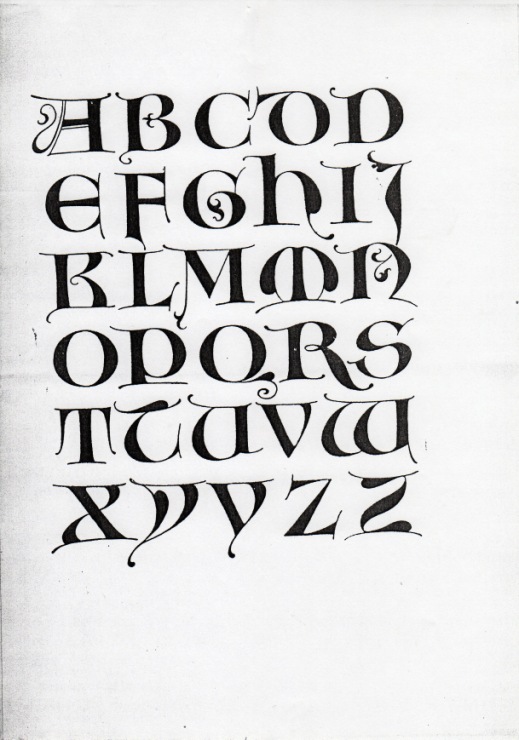 ABCDD
EFGHIJ
KLMMN
OPQRS
TTUVW
XYYZZ